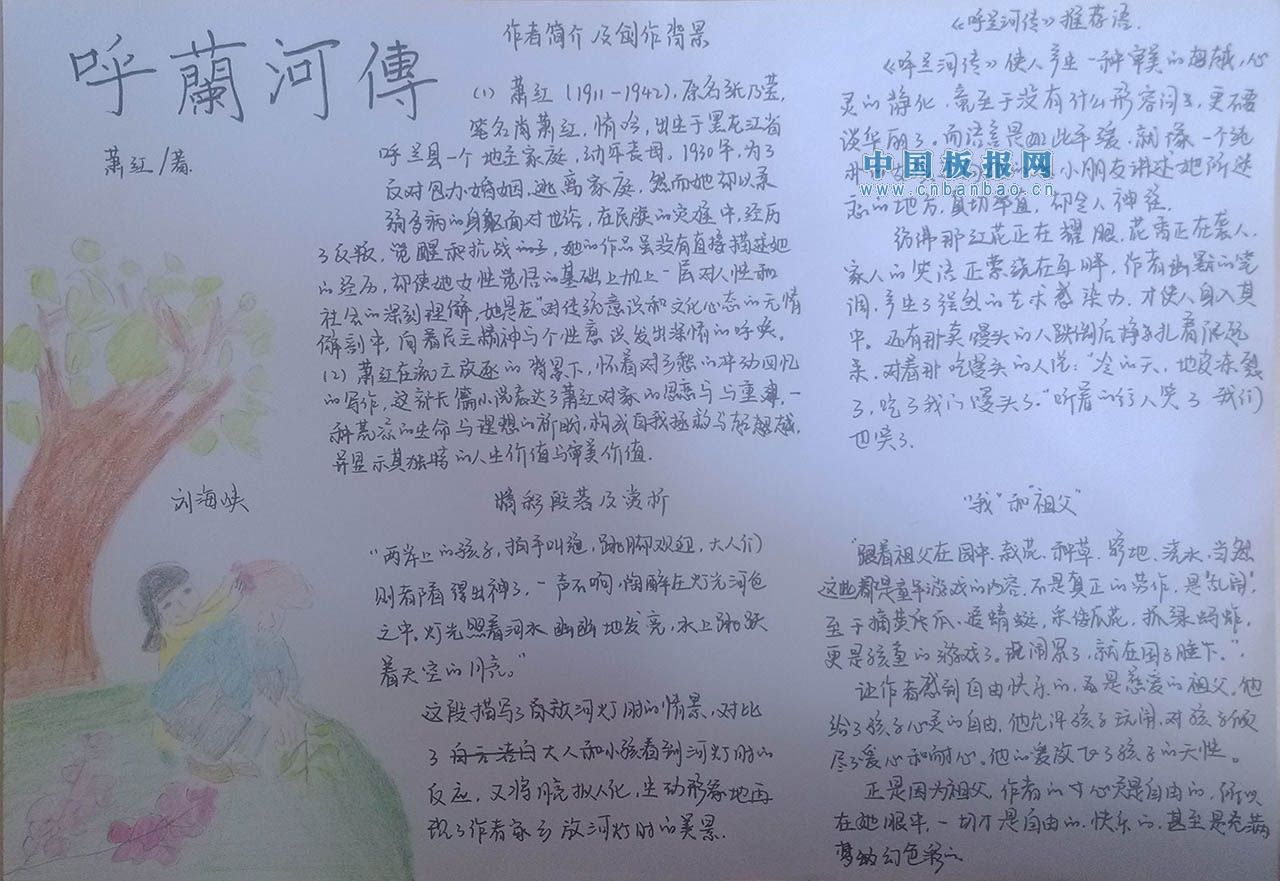 呼蘭河傳
萧红/著.
作者简介及创作背景
(1) 萧红 (1911-1942), 原名张乃莹,
笔名肖萧红, 悄吟, 出生于黑龙江省
呼兰县一个地主家庭, 幼年丧母. 1930年, 为了
反对包办婚姻, 逃离家庭, 然而她却以柔
弱多病的身躯面对世俗, 在民族的灾难中, 经历
了反叛, 觉醒和抗战的, 她的作品虽没有直接描述她
的经历, 却使她女性觉悟的基础上加上一层对人性和
社会的深刻理解, 她是在"对传统意识和文化心态的无情
解剖中, 向着民主精神与个性意识发出深情的呼唤.
(2) 萧红在流亡放逐的背景下, 怀着对乡愁的冲动回忆
的写作, 这部长篇小说表达了萧红对家的思恋与与重建, 一
种荒凉的生命与理想的祈盼, 构成自我拯救与超越,
并显示其独特的人生价值与审美价值.
刘海峡
精彩段落及赏析
"两岸上的孩子, 拍手叫绝, 跳脚欢迎, 大人们
则都看得出神了, 一声不响, 陶醉在灯光河色
之中. 灯光照着河水幽幽地发亮, 水上跳跃
着天空的月亮。"
这段描写了放河灯时的情景, 对比
了大人和小孩看到河灯时的
反应, 又将月亮拟人化, 生动形象地再
现了作者家乡放河灯时的美景.
《呼兰河传》推荐语.
《呼兰河传》使人产生一种审美的超越, 心
灵的静化, 竟至于没有什么形容词, 更不要
谈华丽了. 而语言是如此平缓, 就像一个纯
小朋友讲述她所迷
恋的地方, 真切率直, 却令人神往.
中国板报网
www.cnbanbao.cn
仿佛那红花正在耀眼, 花香正在袭人,
家人的笑语正萦绕在耳畔, 作者幽默的笔
调, 产生了强烈的艺术感染力, 才使人身入其
中. 还有那卖馒头的人跌倒后挣扎着爬起
来, 对着那吃馒头的人说: "冷的天, 地皮冻裂
了, 吃了我的馒头了." 听着的行人笑了 我们
也笑了.
"我"和"祖父"
"跟着祖父在园中, 栽花. 种草. 铲地. 浇水. 当然
这些都是童年游戏的内容, 不是真正的劳作, 是"乱闹",
至于摘黄瓜. 追蜻蜓, 采倭瓜花, 抓绿蚂蚱,
更是孩童的游戏了. 玩闹累了, 就在园子睡下."
让作者感到自由快乐的, 是慈爱的祖父. 他
给了孩子心灵的自由, 他允许孩子玩闹, 对孩子倾
尽了爱心和耐心. 他的爱放飞了孩子的天性。
正是因为祖父, 作者的心灵是自由的, 所以
在她眼中, 一切才是自由的. 快乐的, 甚至是充满
梦幻色彩